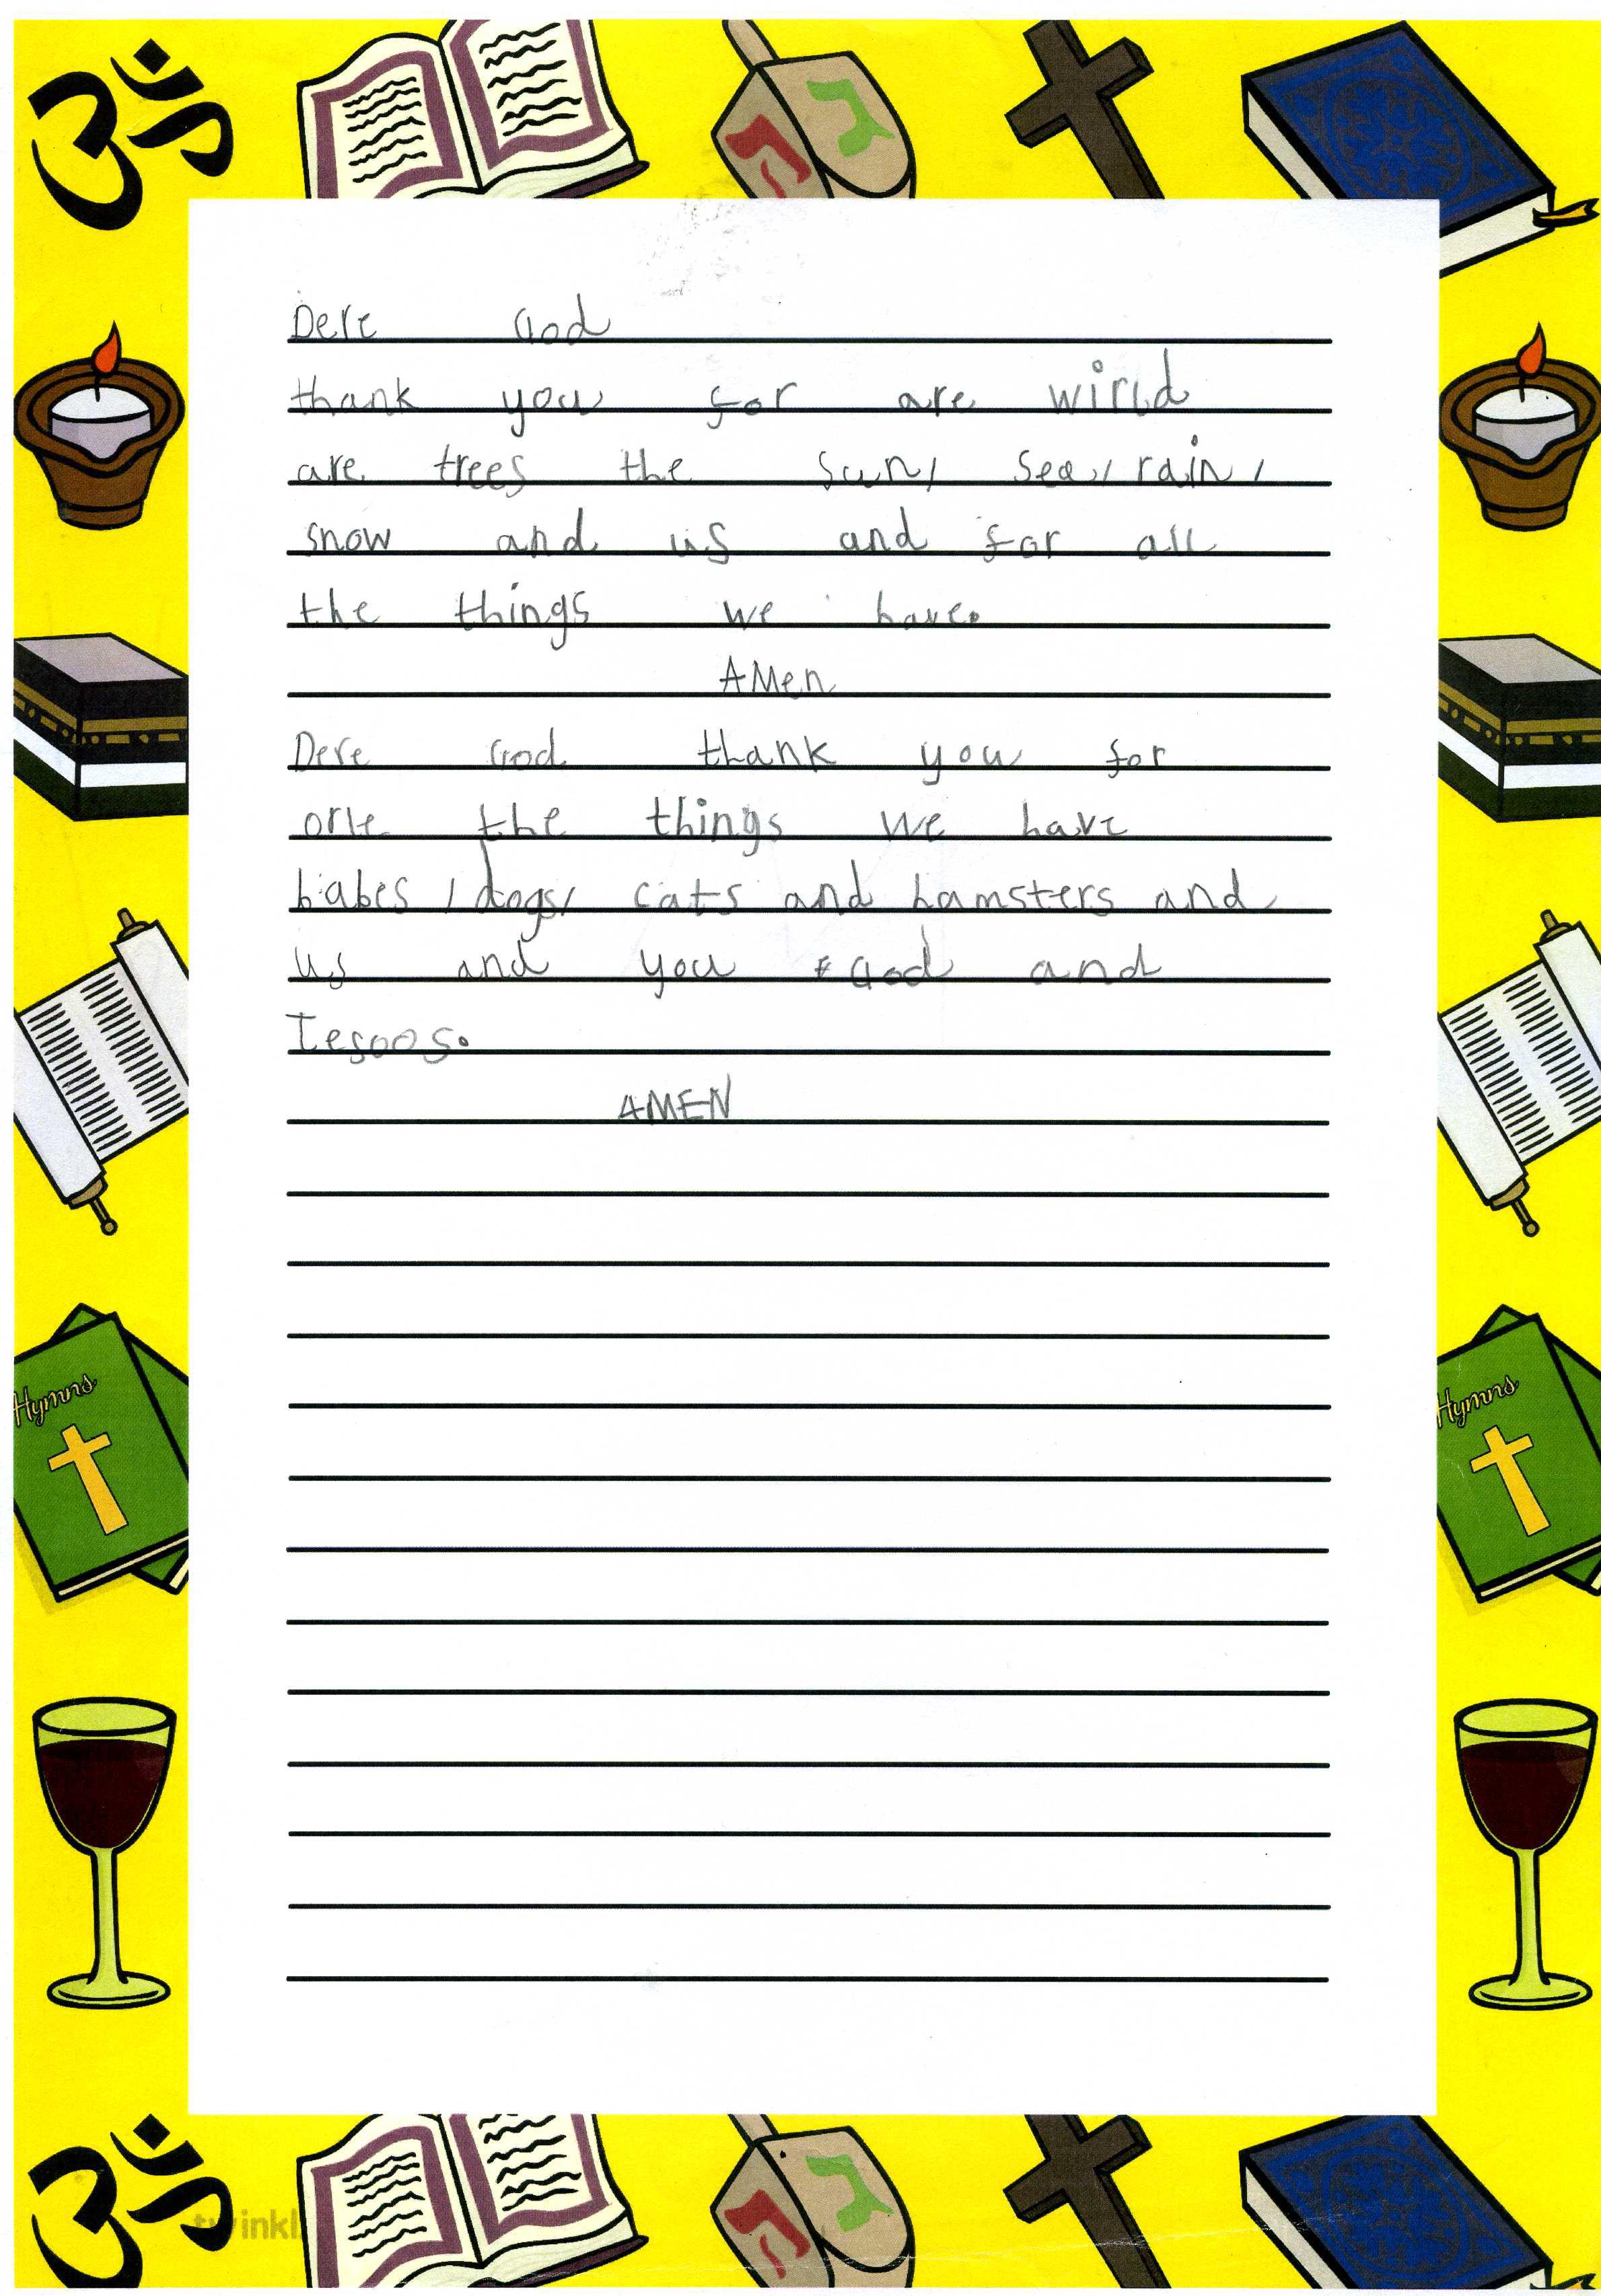 Dere God
thank you for are wirld
are trees the sun, sea, rain,
snow and us and for all
the things we have.
AMen
Dere God thank you for
orle the things we have
babes, dogs, cats and hamsters and
us and you God and
Iesoos.
AMEN
Hymns
Hymns
twinkl